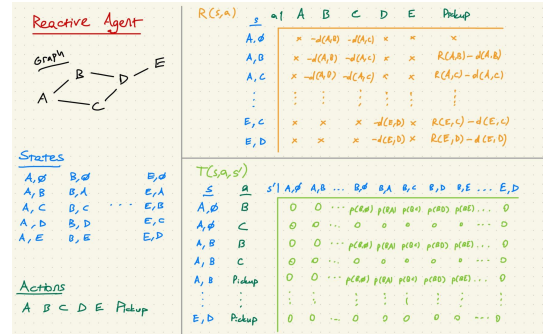 Reactive Agent
Graph
A B C D E
States
A,Ø B,Ø E,Ø
A,B B,A E,A
A,C B,C ... E,B
A,D B,D E,C
A,E B,E E,D
Actions
A B C D E Pickup
R(s,a)
s a| A B C D E Pickup
A,Ø x -d(A,B) -d(A,C) x x x
A,B x -d(A,B) -d(A,C) x x R(A,B)-d(A,B)
A,C x -d(A,B) -d(A,C) x x R(A,C)-d(A,C)
E,C x x x -d(E,D) x R(E,C)-d(E,C)
E,D x x x -d(E,D) x R(E,D)-d(E,D)
T(s,a,s')
s a s'| A,Ø A,B ... B,Ø B,A B,C B,D B,E ... E,D
A,Ø B 0 0 ... p(BØ) p(BA) p(BC) p(BD) p(BE) ... 0
A,Ø C 0 0 ... 0 0 0 0 0 ... 0
A,B B 0 0 ... p(BØ) p(BA) p(BC) p(BD) p(BE) ... 0
A,B C 0 0 ... 0 0 0 0 0 ... 0
A,B Pickup 0 0 ... p(BØ) p(BA) p(BC) p(BD) p(BE) ... 0
E,D Pickup 0 0 ... 0 0 0 0 0 ... 0